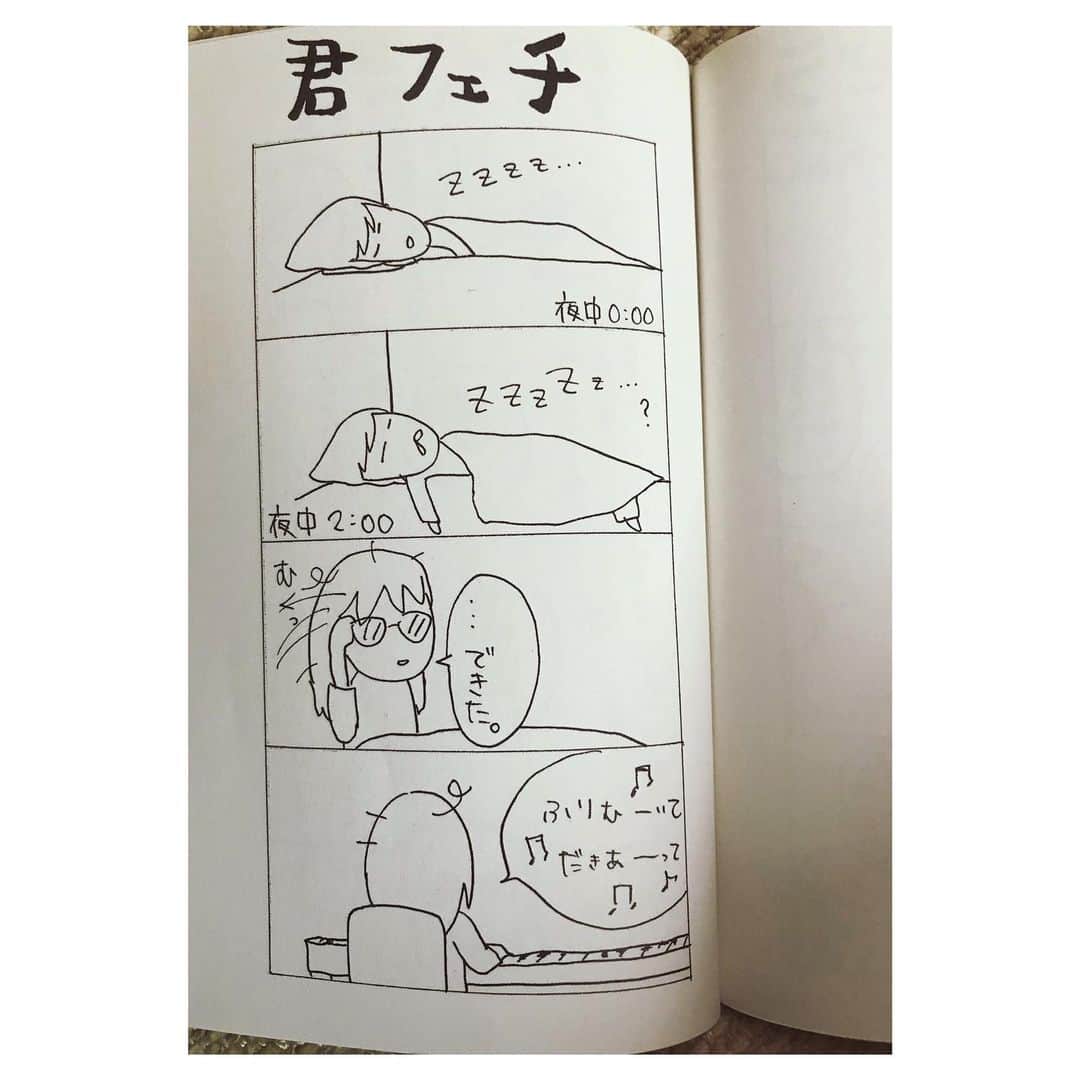 君フェチ
zzzz...
夜中0:00
zzzzz...
?
夜中2:00
むくっ
...できた。
ふりむーいて
だきあーって